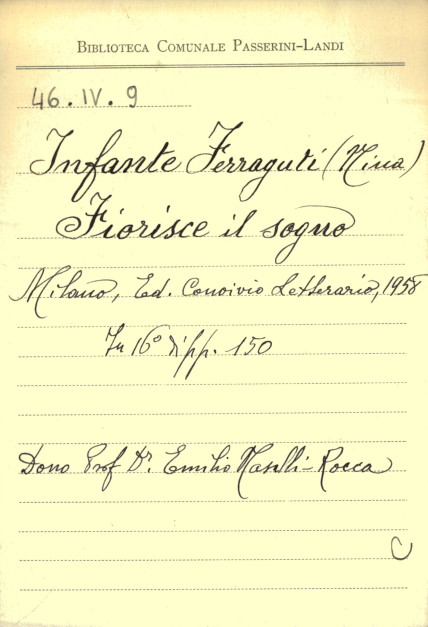 BIBLIOTECA COMUNALE PASSERINI-LANDI
46. IV. 9
Infante Ferraguti (Nina)
Fiorisce il sogno
Milano, Ed. Convivio Letterario, 1958
In 16° di pp. 150
Dono Prof Dr. Emilio Naselli-Rocca
C